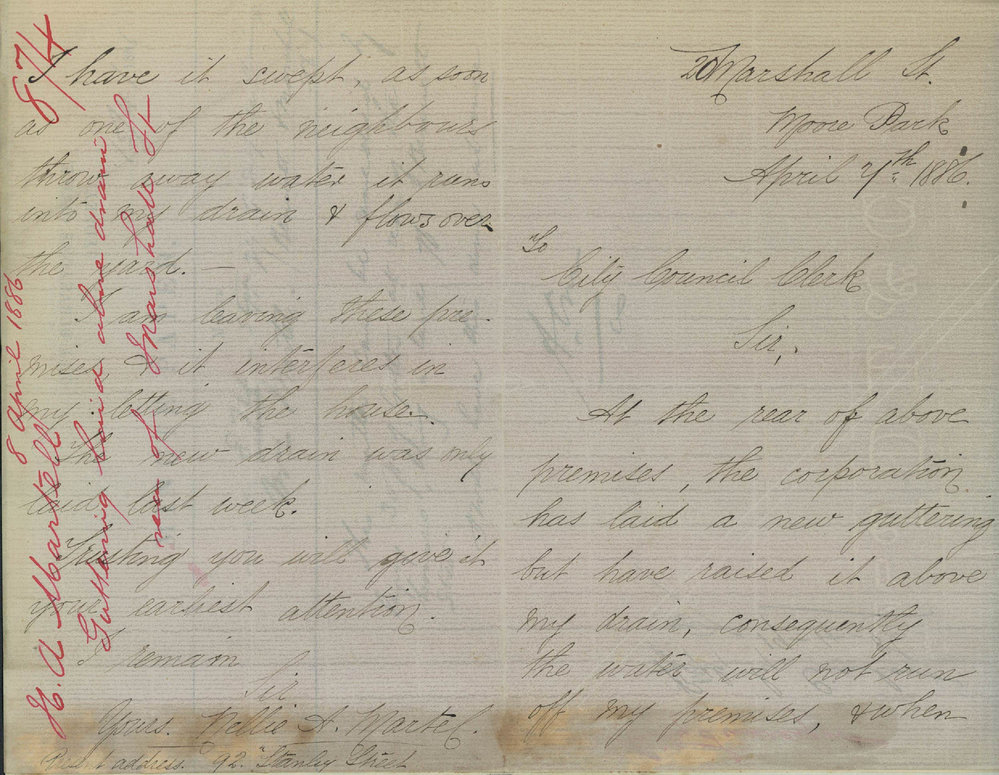 20 Marshall St.
Moore Park
April 7th 1886.
To
City Council Clerk
Sir,
At the rear of above
premises, the corporation
has laid a new guttering
but have raised it above
my drain, consequently
the water will not run
off my premises, & when
I have it swept, as soon
as one of the neighbours
throw away water it runs
into my drain & flows over
the yard. —
I am leaving these pre-
mises & it interferes in
my letting the house.
The new drain was only
laid last week.
Trusting you will give it
your earliest attention.
I remain
Sir
Yours. Nellie A. Martel.
Present address. 92 Stanley Street
87/4
8 April 1886
H. A Martell
Guttering laid above drain
rear of Marshall St